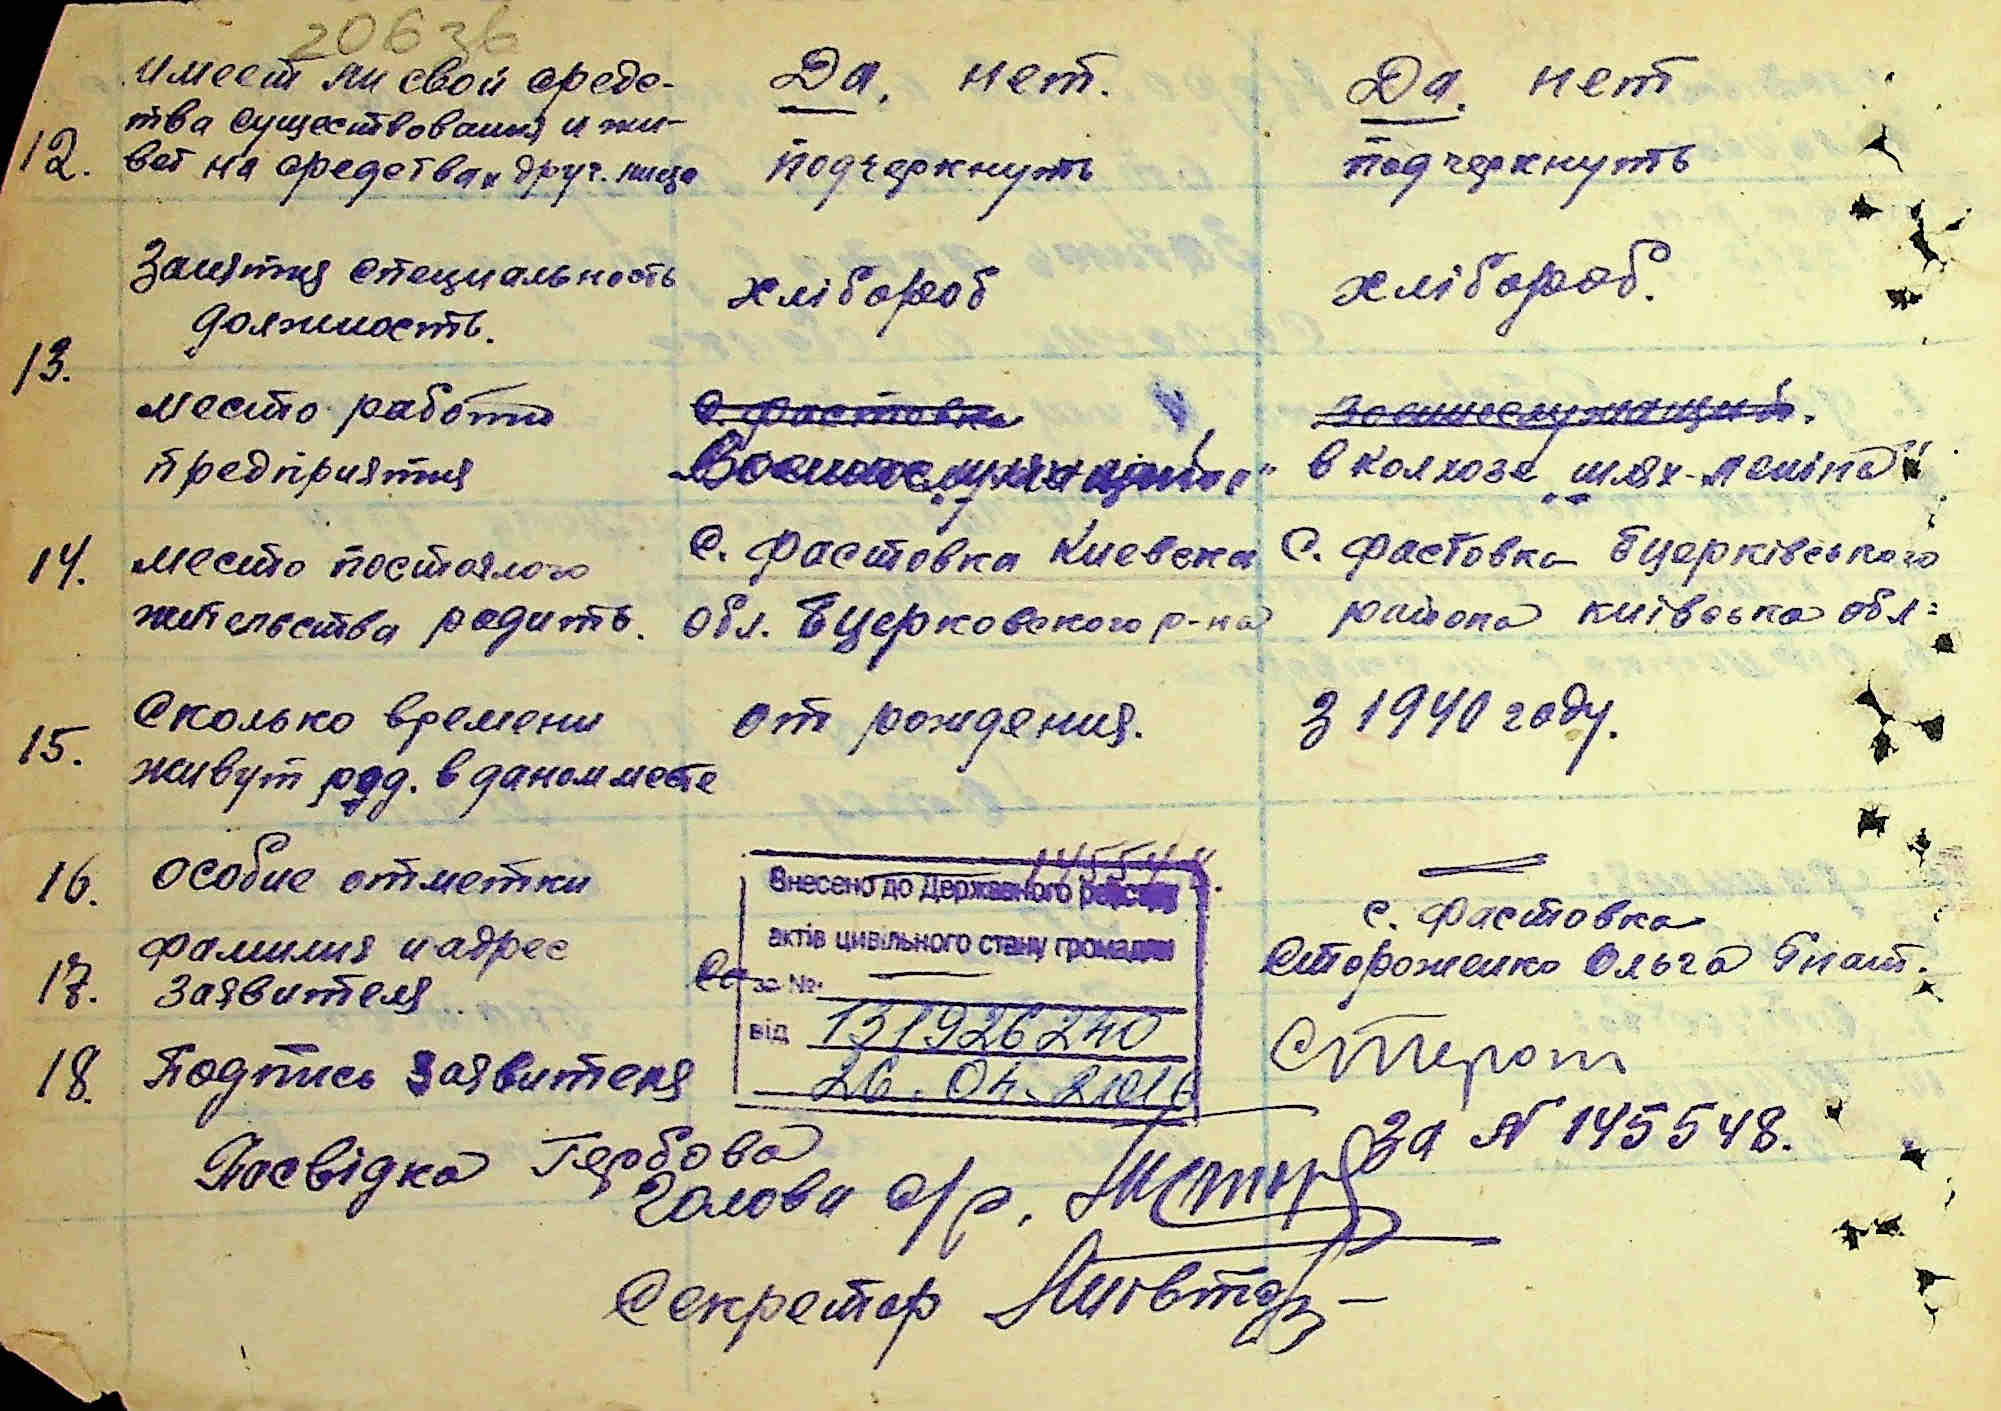 20636
12.
Имеет ли свои средс-
тва существования и жи-
вет на средства друг. лица
Да, нет.
подчеркнуть
Да. нет
подчеркнуть
13.
Занятия специальность
должность.
хлібороб
хлібороб.
место работы
предприятия
с. Фастовка
Военнослужащий.
в колхозе „шлях-Леніна"
14.
место постоялого
жительства родить.
С. Фастовка Киевска
обл. Бцерковского р-на
С. Фастовка Бцерківського
района київська обл-
15.
Сколько времени
живут род. в даном месте
от рождения.
З 1940 году.
16.
особие отметки
17.
фамилия и адрес
заявителя
с. Фастовка
Стороженко Ольга Гнат.
18.
Подпись заявителя
Внесено до Державного реєстру
актів цивільного стану громадян
за №
від 131926240
26.04.2016
Посвідка Гербова
За № 145548.
Голови с/р.
Секретар